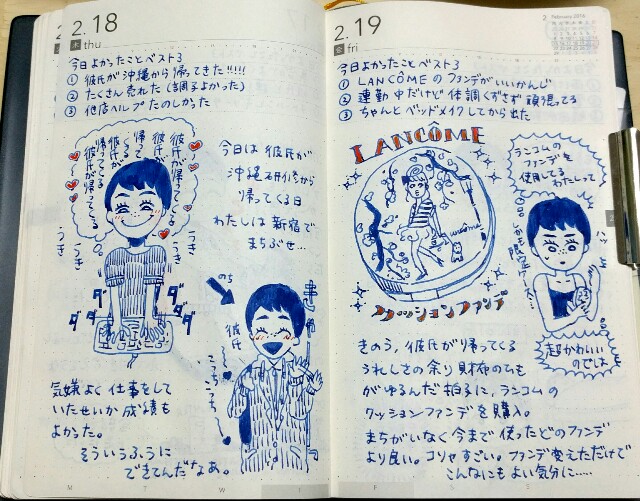 2.18
木 thu
今日よかったことベスト3
① 彼氏が沖縄から帰ってきた!!!!
② たくさん売れた(調子よかった)
③ 他店ヘルプたのしかった
彼氏が帰ってくる
うき
うき
うき
うき
ダ
ダ
ダ
ダ
今日は彼氏が
沖縄研修から
帰ってくる日
わたしは新宿で
まちぶせ…
のち
彼氏
こっち
こっち
気嫌よく仕事をして
いたせいか成績も
よかった。
そういうふうに
できてんだなぁ。
2.19
金 fri
2 February 2016
今日よかったことベスト3
① LANCÔMEのファンデがいいかんじ
② 連勤中だけど体調くずさず頑張ってる
③ ちゃんとベッドメイクしてから出た
LANCÔME
Lancôme
クッションファンデ
ランコムの
ファンデを
使用してる
わたしって
超かわいい
のでは
きのう、彼氏が帰ってくる
うれしさの余り財布のひも
がゆるんだ拍子に、ランコムの
クッションファンデを購入。
まちがいなく今まで使ったどのファンデ
より良い。コリャすごい。ファンデ変えただけで
こんなにもよい気分に……
M T W F S